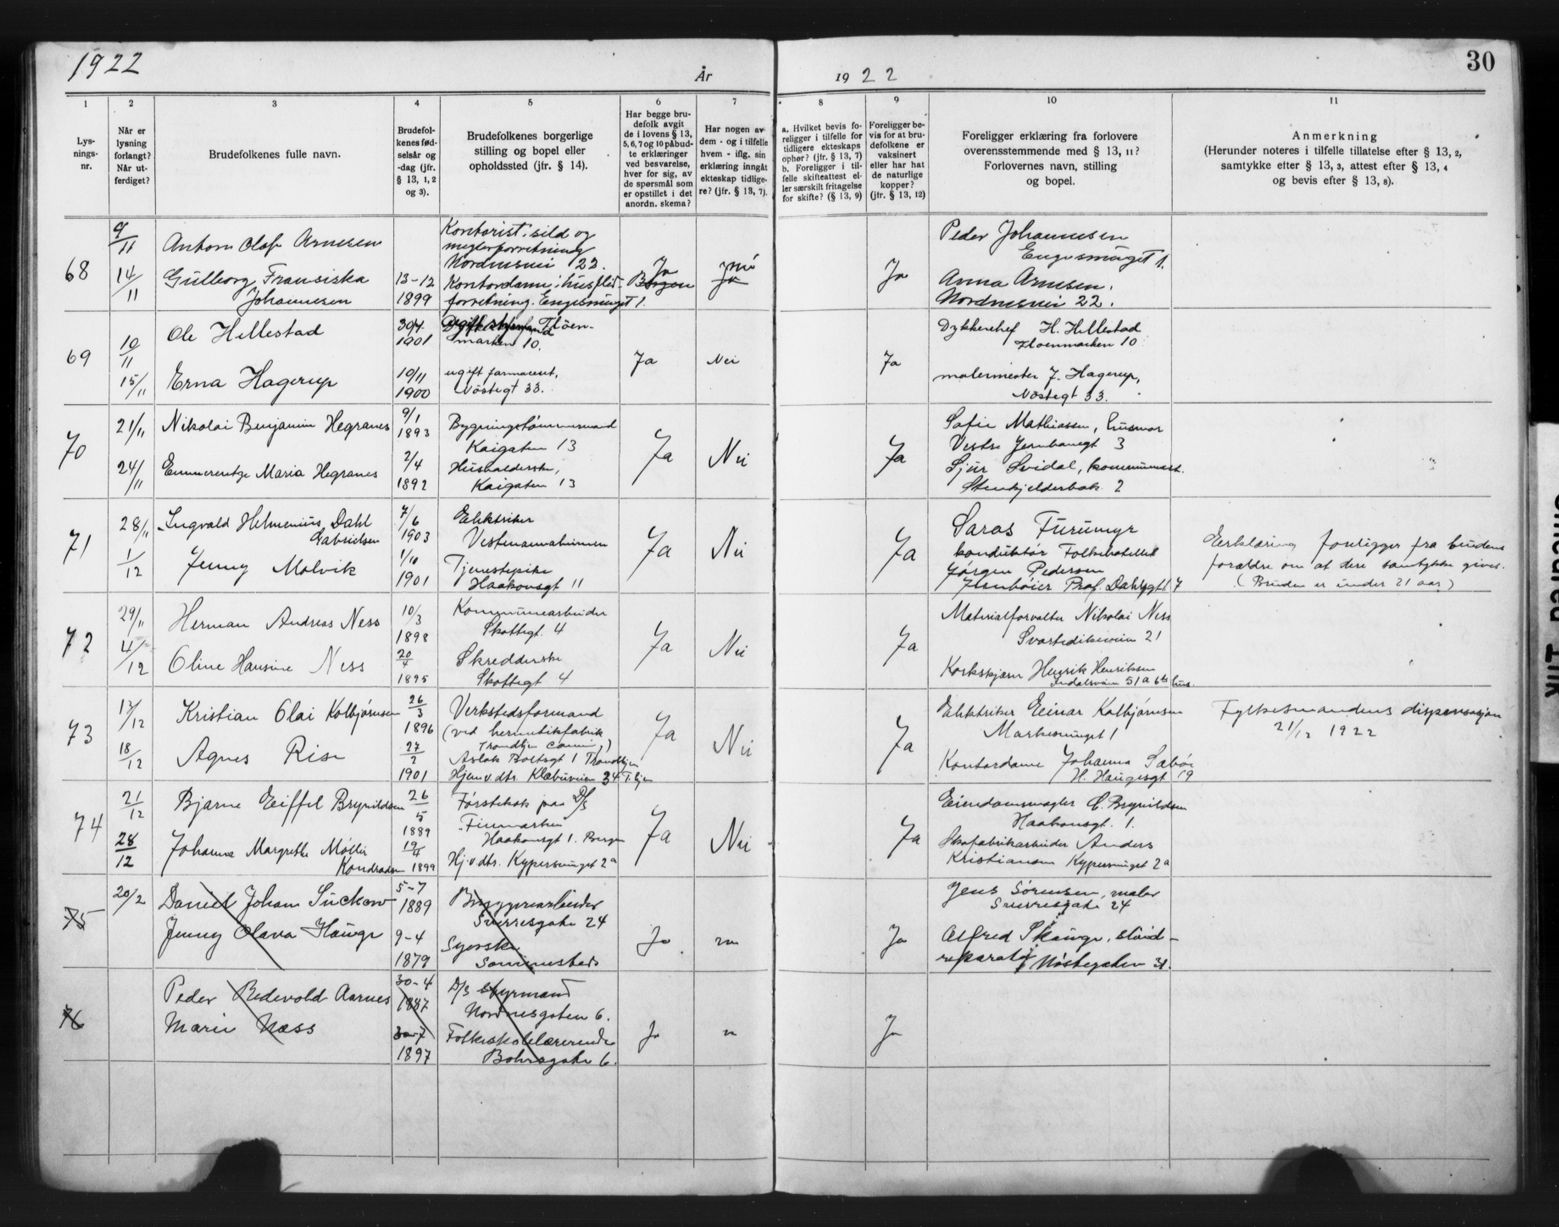 1922
År
1922
30
1
2
3
4
5
6
7
8
9
10
11
Lys-
nings-
nr.
Når er
lysning
forlangt?
Når ut-
ferdiget?
Brudefolkenes fulle navn.
Brudefol-
kenes fød-
selsår og
-dag (jfr.
§ 13, 1, 2
og 3).
Brudefolkenes borgerlige
stilling og bopel eller
opholdssted (jfr. § 14).
Har begge bru-
defolk avgit
de i lovens § 13,
5, 6, 7 og 10 påbud-
te erklæringer
ved besvarelse,
hver for sig, av
de spørsmål som
er opstillet i det
anordn. skema?
Har nogen av
dem - og i tilfelle
hvem - iflg. sin
erklæring inngåt
ekteskap tidlige-
re? (jfr. § 13, 7).
a. Hvilket bevis fo-
religger i tilfelle for
tidligere ekteskaps
ophør? (jfr. § 13, 7)
b. Foreligger i til-
felle skifteattest el-
ler særskilt fritagelse
for skifte? (§ 13, 9)
Foreligger be-
vis for at bru-
defolkene er
vaksinert
eller har hat
de naturlige
kopper?
(jfr. § 13, 12)
Foreligger erklæring fra forlovere
overensstemmende med § 13, 11?
Forlovernes navn, stilling
og bopel.
Anmerkning
(Herunder noteres i tilfelle tillatelse efter § 13, 2,
samtykke efter § 13, 3, attest efter § 13, 4
og bevis efter § 13, 8).
68
9/11
14/11
Anton Olaf Arnesen
Gullborg Fransiska
Johannesen
13-12
1899
Kontorist i sild og
meglerforretning
Nordnesvei 22.
Kontordame i husflid-
forretning. Engesmuget 1.
Ja
Bergen
nei
Ja
Ja
Peder Johannesen
Engesmuget 1.
Anna Arnesen.
Nordnesvei 22.
69
10/11
15/11
Ole Hillestad
Erna Hagerup
30/4
1901
10/11
1900
Fløen-
marken 10.
ugift farmaceut,
Nøstegt 33.
Ja
Nei
Ja
Dykkerchef H. Hillestad
Fløenmarken 10
malermester J. Hagerup,
Nøstegt 33.
70
21/11
24/11
Nikolai Benjamin Hegranes
Emmerentze Maria Hegranes
9/1
1893
2/4
1892
Bygningstømmermand
Kaigaten 13
Husholderske,
Kaigaten 13
Ja
Nei
Ja
Sofie Mathiassen, Husmor
Vestre Jernbanegt 3
Sjur Svidal, kommunearb.
Stenkjelderbak. 2
71
28/11
1/12
Ingvald Helmenius Dahl
Gabrielsen
Jenny Molvik
7/6
1903
1/10
1901
Elektriker
Vestennavatnnen
Tjenestepike
Haakonsgt 11
Ja
Nei
Ja
Saras Furumyr
konduktør Folkehotellet
Jørgen Pedersen
Isenbøier Prof. Dahlsgt 7
Erklæring foreligger fra brudens
foreldre om at dere samtykke gives.
(Bruden er under 21 aar)
72
29/11
4/12
Herman Andreas Ness
Oline Hansine Ness
10/3
1898
20/4
1895
Kommunearbeider
Skottegt. 4
Skredderske
Skottegt 4
Ja
Nei
Ja
Materialforvalter Nikolai Ness
Svartedikeveien 21
Korkskjærer Henrik Henriksen
51 a
73
17/12
18/12
Kristian Olai Kolbjørnsen
Agnes Rise
26/3
1896
27/2
1901
Verkstedsformand
(ved hermetikfabrik
Trondhjem Canning)
Aslak Boltsgt 1 Trondhjem
Hjem. v. dts. Klæbuveien 34 T.hjem
Ja
Nei
Ja
Elektriker Einar Kolbjørnsen
Markesmuget 1
Kontordame Johanna Sabøe
H. Haugesgt 19
Fylkesmandens dispensasjon
21/12 1922
74
21/12
28/12
Bjarne Eiffel Brynildsen
Johanne Margrethe Møller
Kondradsen
26/5
1889
19/4
1899
Førstekok paa D/S
"Finmarken"
Haakonsgt 1. Bergen
Hj. v. dts. Kypersmuget 2a
Ja
Nei
Ja
Eiendomsmægler C. Brynildsen
Haakonsgt. 1.
Skofabrikarbeider Anders
Kristiansen Kypersmuget 2a
75
20/2
Daniel Johan Suckow
Jenny Olava Hauge
5-7
1889
9-4
1879
Bryggeriarbeider
Sverresgate 24
Syerske
Sammesteds
Ja
nei
Ja
Jens Sørensen, maler
Sverresgate 24
Alfred Skauge, skind-
reparatør Nøstegaten 31.
76
Peder Redevold Aarnes
Marie Næss
30-4
1887
30-7
1897
D/S styrmand
Nordnesgaten 6.
Folkeskolelærerinde
Bohrsgate 6.
Ja
n
Ja